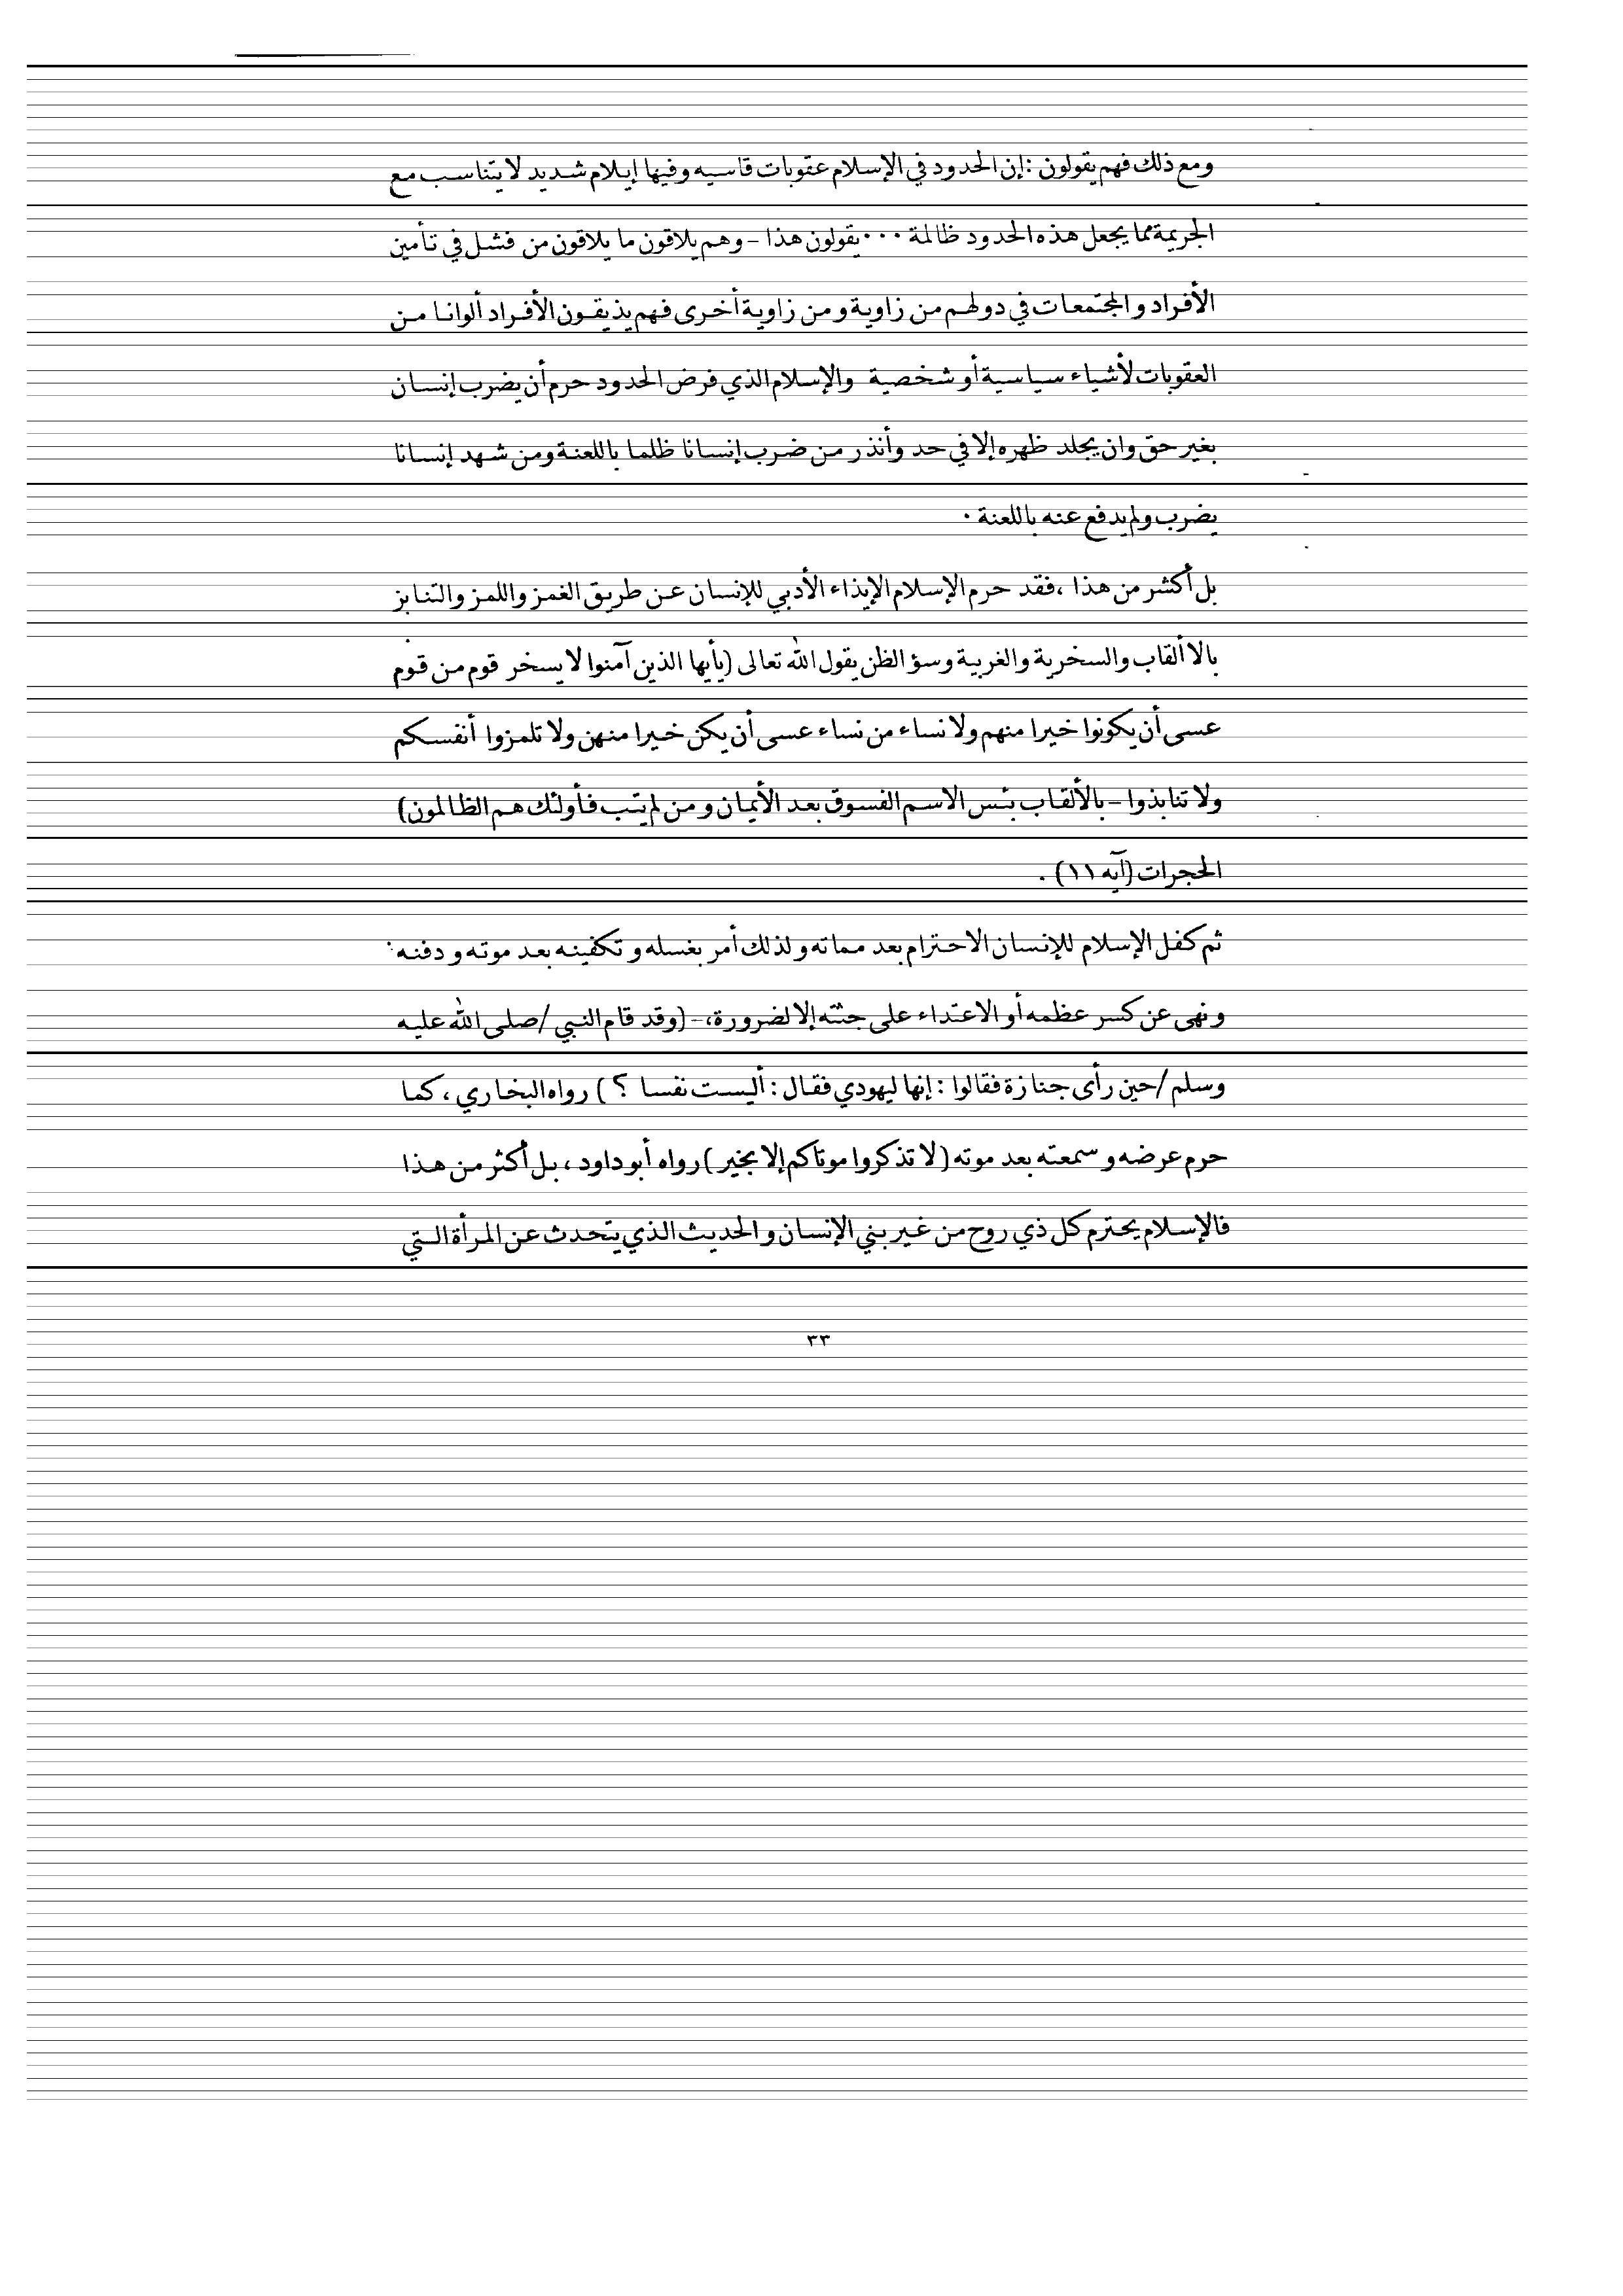 ومع ذلك فهم يقولون : إن الحدود في الإسلام عقوبات قاسيه وفيها إيلام شديد لا يتناسب مع
الجريمة مما يجعل هذه الحدود ظالمة ٠٠٠ يقولون هذا - وهم يلاقون ما يلاقون من فشل في تأمين
الأفراد والمجتمعات في دولهم من زاوية ومن زاوية أخرى فهم يذيقون الأفراد ألوانا من
العقوبات لأشياء سياسية أو شخصية والإسلام الذي فرض الحدود حرم أن يضرب إنسان
بغير حق وان يجلد ظهره إلا في حد وأنذر من ضرب إنسانا ظلما باللعنة ومن شهد إنسانا
يضرب ولم يدفع عنه باللعنة ٠
بل أكثر من هذا ، فقد حرم الإسلام الإيذاء الأدبي للإنسان عن طريق الغمز واللمز والتنابز
بالا ألقاب والسخرية والغريبة وسؤ الظن يقول الله تعالى (يأيها الذين آمنوا لا يسخر قوم من قوم
عسى أن يكونوا خيرا منهم ولا نساء من نساء عسى أن يكن خيرا منهن ولا تلمزوا أنفسكم
ولا تنابذوا - بالألقاب بئس الاسم الفسوق بعد الأيمان ومن لم يتب فأولئك هم الظالمون)
الحجرات (آيه ١١) .
ثم كفل الإسلام للإنسان الاحترام بعد مماته ولذلك أمر بغسله وتكفينه بعد موته ودفنه
ونهى عن كسر عظمه أو الاعتداء على جثته إلا لضرورة، - (وقد قام النبي /صلى الله عليه
وسلم /حين رأى جنازة فقالوا : إنها ليهودي فقال : أليست نفسا ؟ ) رواه البخاري ، كما
حرم عرضه وسمعته بعد موته ( لا تذكروا موتاكم إلا بخير ) رواه أبو داود ، بل أكثر من هذا
فالإسلام يحترم كل ذي روح من غير بني الإنسان والحديث الذي يتحدث عن المرأة التي
٣٣